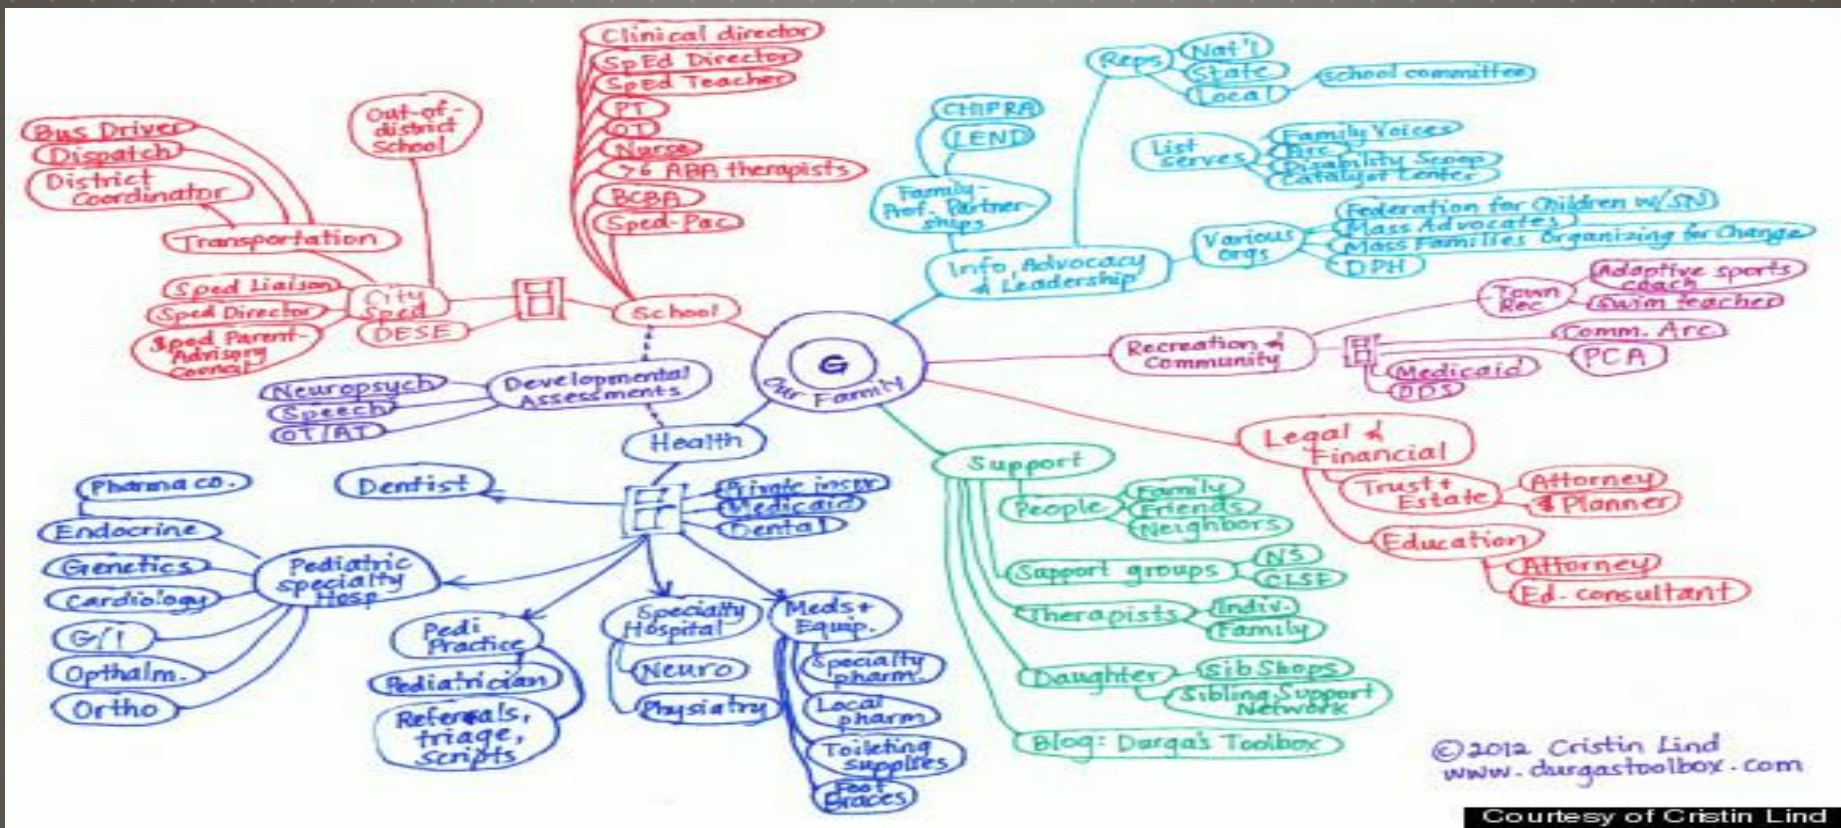 G
Our Family
School
Clinical director
SpEd Director
SpEd Teacher
PT
OT
Nurse
>6 ABA therapists
BCBA
Sped-Pac
Out-of-
district
School
Bus Driver
Dispatch
District
Coordinator
Transportation
Sped Liaison
Sped Director
Sped Parent-
Advisory
Council
City
Sped
DESE
Developmental
Assessments
Neuropsych
Speech
OT/AT
Health
Private insur
Medicaid
Dental
Dentist
Pediatric
Specialty
Hosp
Pharma co.
Endocrine
Genetics
Cardiology
G/I
Opthalm.
Ortho
Pedi
Practice
Pediatrician
Referrals,
triage,
scripts
Specialty
Hospital
Neuro
Physiatry
Meds+
Equip.
Specialty
pharm.
Local
pharm
Toileting
supplies
Foot
Braces
Info, Advocacy
& Leadership
Family-
Prof. Partner-
ships
CHIPRA
LEND
Reps
Nat'l
State
Local
School committee
List
serves
Family Voices
Arc
Disability Scoop
Catalyst Center
Various
orgs
Federation for Children w/SN
Mass Advocates
Mass Families Organizing for Change
DPH
Recreation &
Community
Town
Rec
Adaptive sports
coach
Swim teacher
Comm. Arc
PCA
Medicaid
DDS
Legal &
Financial
Trust +
Estate
Attorney
$ Planner
Education
Attorney
Ed. consultant
Support
People
Family
Friends
Neighbors
Support groups
NS
CLSF
Therapists
Indiv.
Family
Daughter
SibShops
Sibling Support
Network
Blog: Durga's Toolbox
©2012 Cristin Lind
www.durgastoolbox.com
Courtesy of Cristin Lind